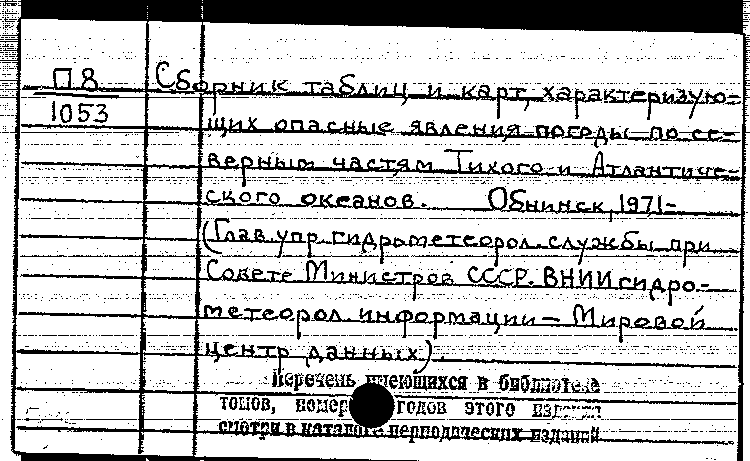 П8
1053
Сборник таблиц и карт, характеризую-
щих опасные явления погоды по се-
верным частям Тихого и Атлантиче-
ского океанов. Обнинск, 1971-
(Глав. упр. гидрометеорол. службы при
Совете Министров СССР. ВНИИ гидро-
метеорол. информации — Мировой
центр данных).
Перечень имеющихся в библиотеке
томов, номер годов этого издания
смотри в каталоге периодических изданий